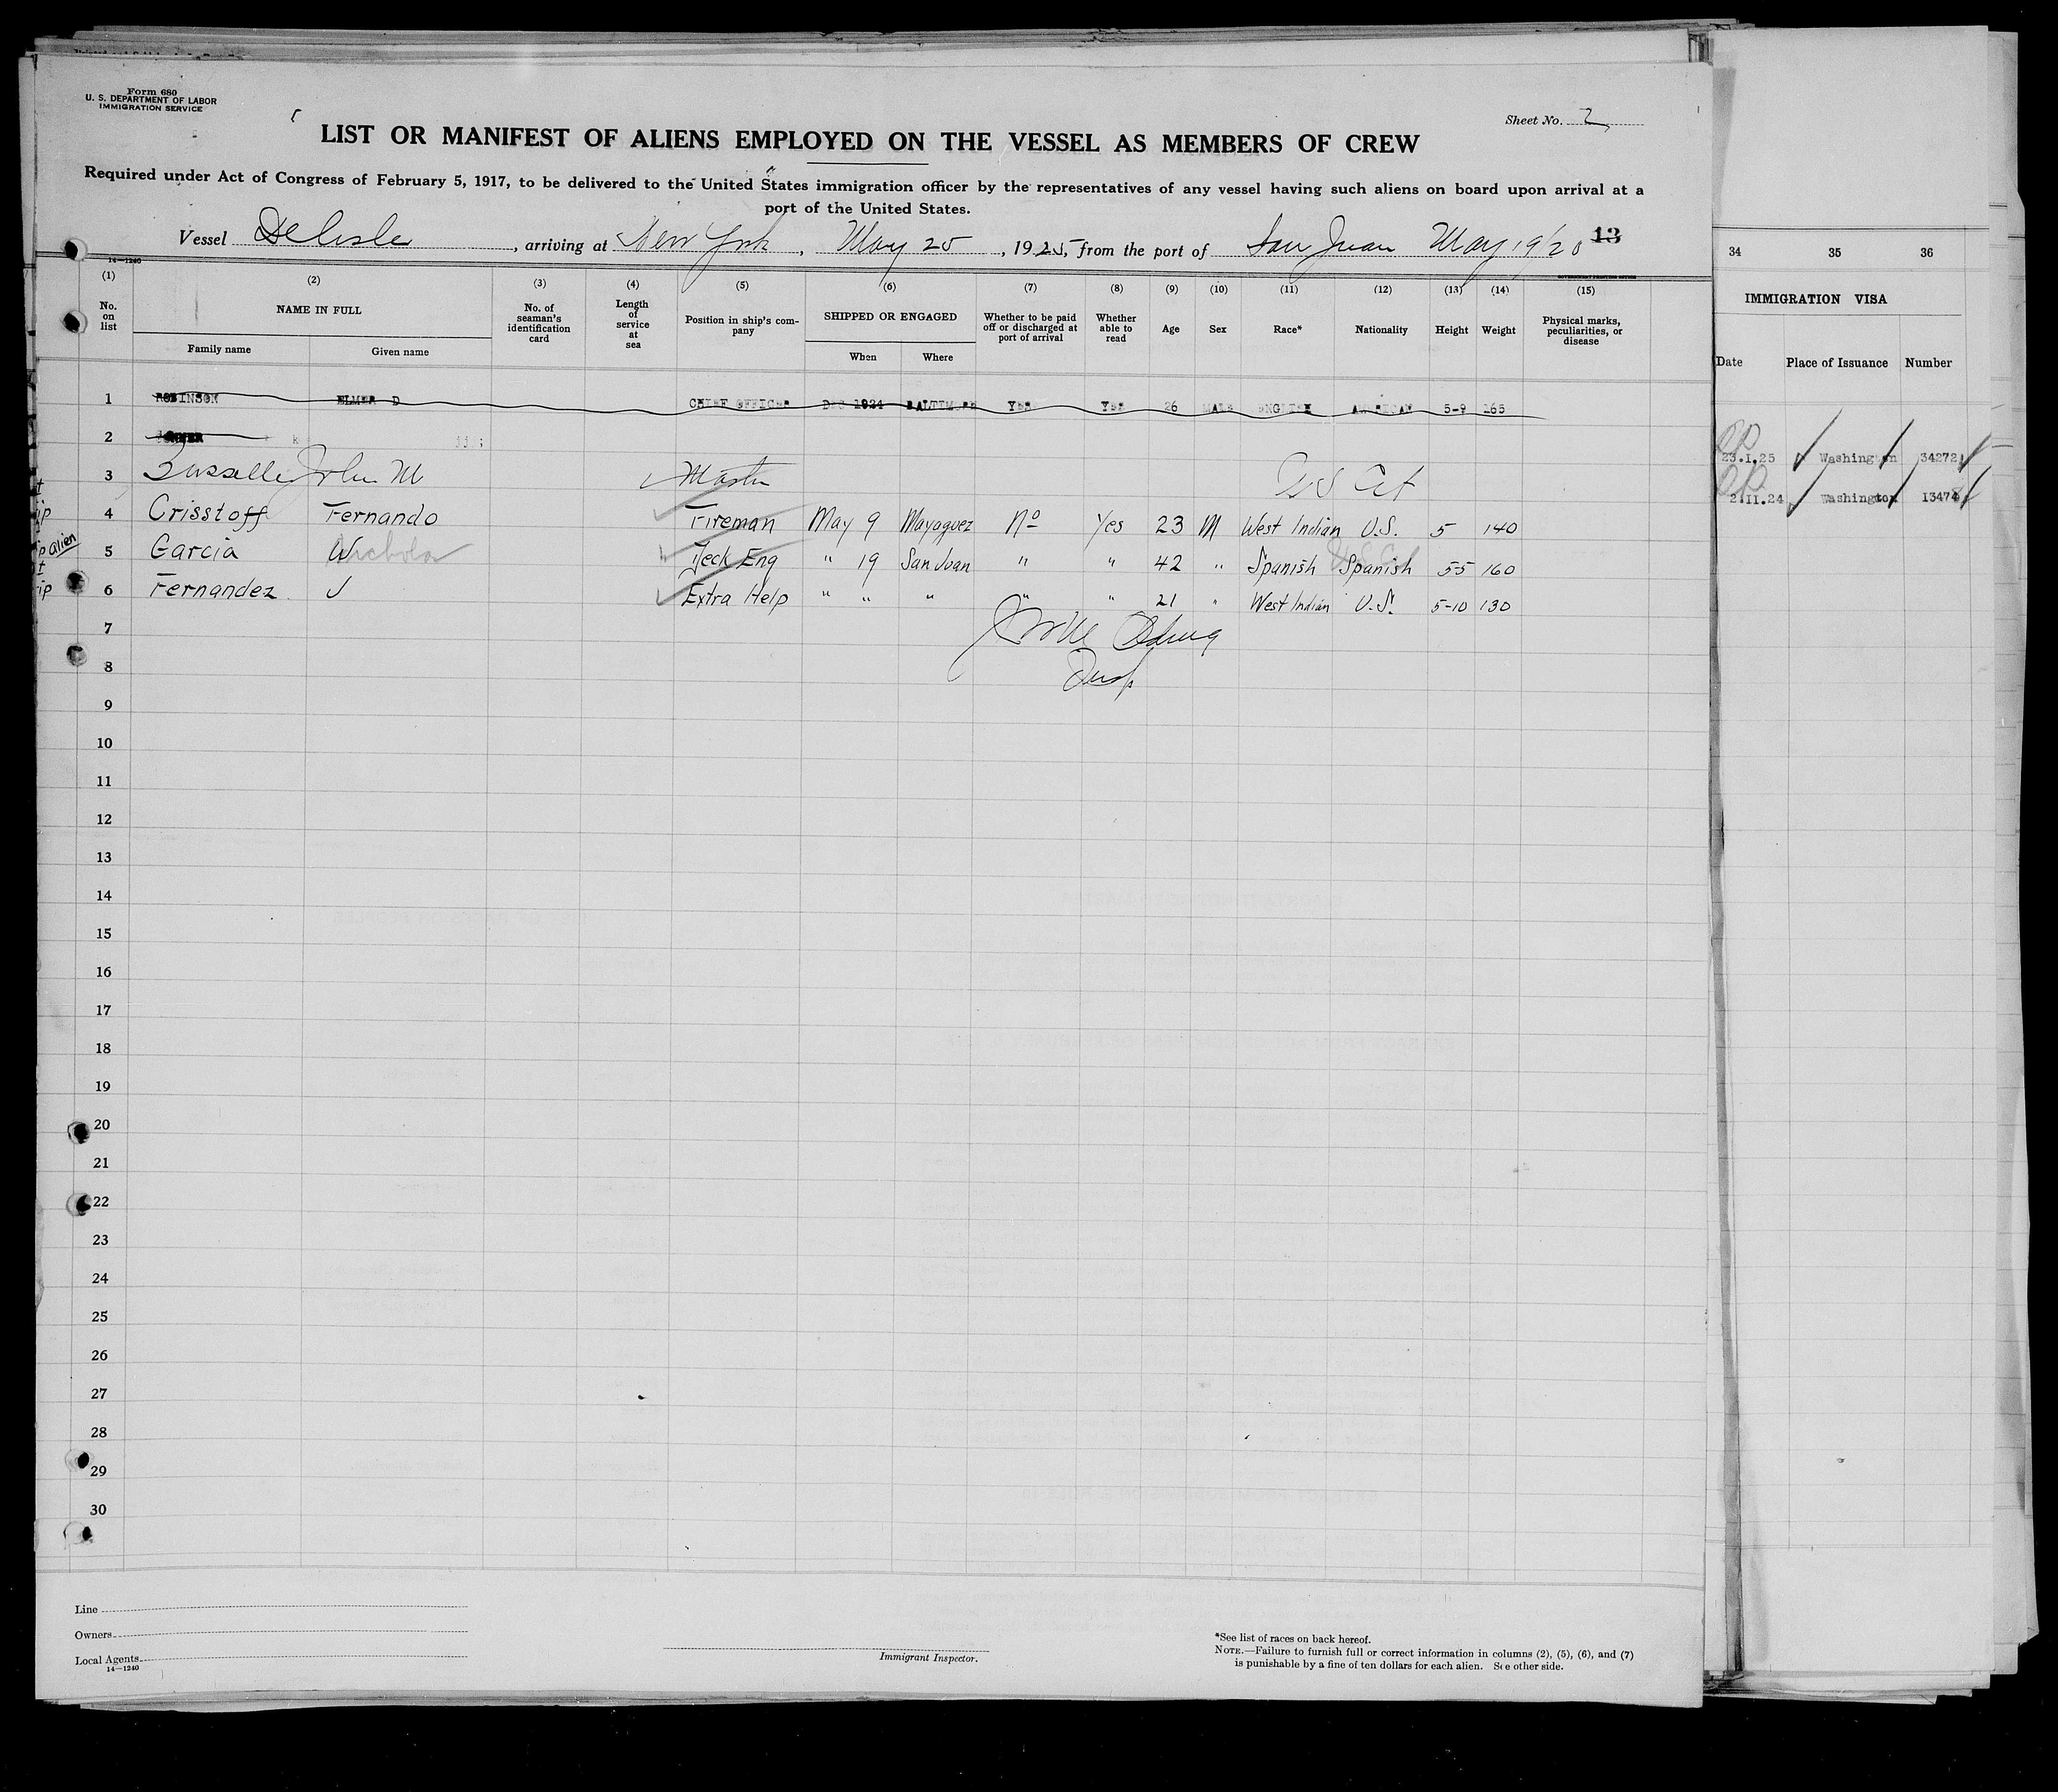 Form 680
U. S. DEPARTMENT OF LABOR
IMMIGRATION SERVICE
Sheet No. 2
LIST OR MANIFEST OF ALIENS EMPLOYED ON THE VESSEL AS MEMBERS OF CREW
Required under Act of Congress of February 5, 1917, to be delivered to the United States immigration officer by the representatives of any vessel having such aliens on board upon arrival at a
port of the United States.
Vessel Delisle, arriving at New York, May 25, 1925, from the port of San Juan May 19/20 13
14-1240
(1) (2) (3) (4) (5) (6) (7) (8) (9) (10) (11) (12) (13) (14) (15)
No. on list NAME IN FULL No. of seaman's identification card Length of service at sea Position in ship's company SHIPPED OR ENGAGED Whether to be paid off or discharged at port of arrival Whether able to read Age Sex Race* Nationality Height Weight Physical marks, peculiarities, or disease
Family name Given name When Where
1 ROBINSON ELMER D CHIEF OFFICER DEC 1924 BALTIMORE YES YES 26 MALE ENGLISH AMERICAN 5-9 165
2
3 John M Master US Cit
4 Crisstoff Fernando Fireman May 9 Mayaguez No Yes 23 M West Indian U.S. 5 140
alien 5 Garcia Nicholas Deck Eng " 19 San Juan " " 42 " Spanish Spanish 55 160
6 Fernandez J Extra Help " " " " " 21 " West Indian U.S. 5-10 130
7
8
9
10
11
12
13
14
15
16
17
18
19
20
21
22
23
24
25
26
27
28
29
30
Line
Owners
Local Agents
14-1240
Immigrant Inspector.
*See list of races on back hereof.
NOTE.—Failure to furnish full or correct information in columns (2), (5), (6), and (7)
is punishable by a fine of ten dollars for each alien. See other side.
34 35 36
IMMIGRATION VISA
Date Place of Issuance Number
23.I.25 Washington 34272
2.II.24 Washington 13474